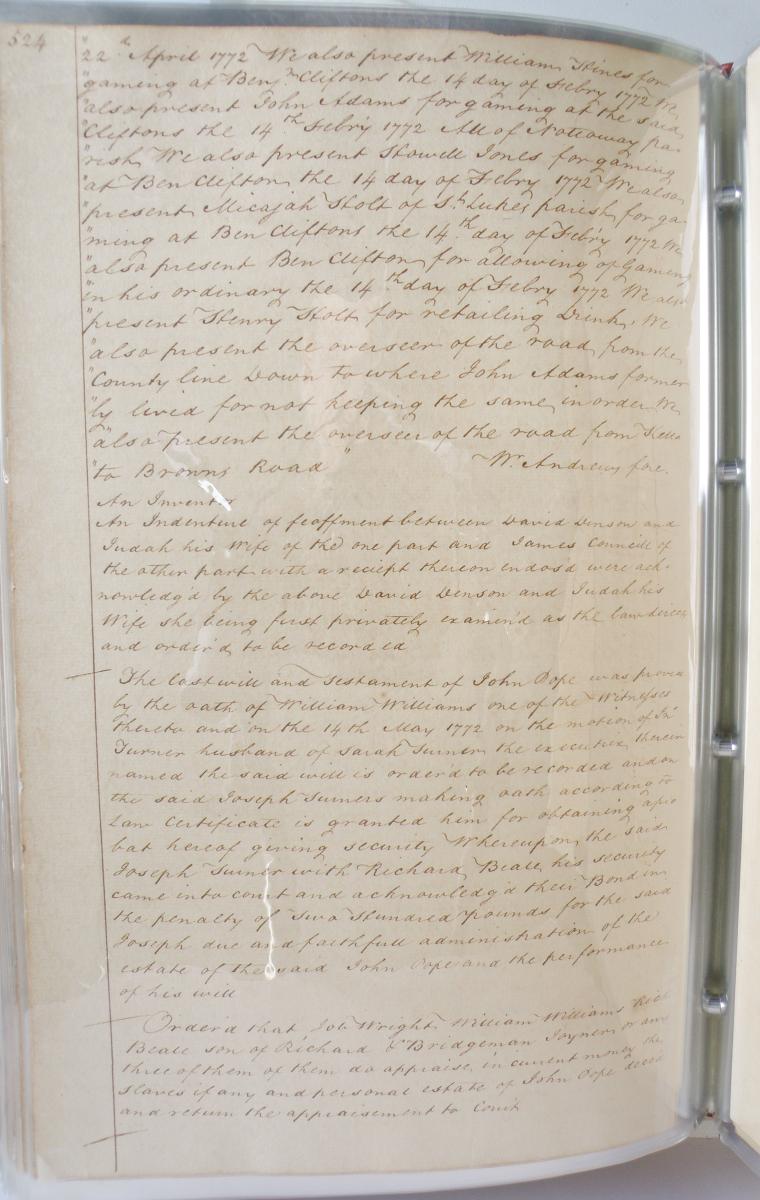 524
"22d April 1772 We also present William Hines for
"gaming at Benjn Cliftons the 14 day of Febry 1772 We
"also present John Adams for gaming at the said
"Cliftons the 14th Febry 1772 All of Nottoway pa-
"rish We also present Howell Jones for gaming
"at Ben Clifton the 14 day of Febry 1772 We also
"present Micajah Holt of St Lukes parish for ga-
"ming at Ben Cliftons the 14th day of Febry 1772 We
"also present Ben Clifton for allowing of Gaming
"in his ordinary the 14th day of Febry 1772 We also
"present Henry Holt for retailing Drink, We
"also present the overseer of the road from the
"County line Down to where John Adams former
"ly livid for not keeping the same in order We
"also present the overseer of the road from
"to Browns Road" Wm Andrews fore.
An Inventor
An Indenture of feoffment between David Denson and
Judah his Wife of the one part and James Councill of
the other part with a reciept thereon endos'd were ack-
nowledg'd by the above David Denson and Judah his
Wife she being first privately examin'd as the law directs
and order'd to be recorded
The last will and Testament of John Pope was proved
by the oath of William Williams one of the Witnesses
thereto and on the 14th May 1772 on the motion of
Turner husband of Sarah Turner the executrix therein
named the said will is order'd to be recorded and on
the said Joseph Turners making oath according to
Law Certificate is granted him for obtaining a pro
bat hereof giving security Whereupon the said
Joseph Turner with Richard Beale his security
came into court and acknowledg'd their Bond in
the penalty of Two Hundred Pounds for the said
Joseph due and faithfull administration of the
estate of the said John Pope and the performance
of his will
Order'd that Job Wright William Williams Rich
Beale son of Richard & Bridgeman Joyner or any
three of them of them do appraise in current money the
slaves if any and personal estate of John Pope dec'd
and return the appraisement to Court